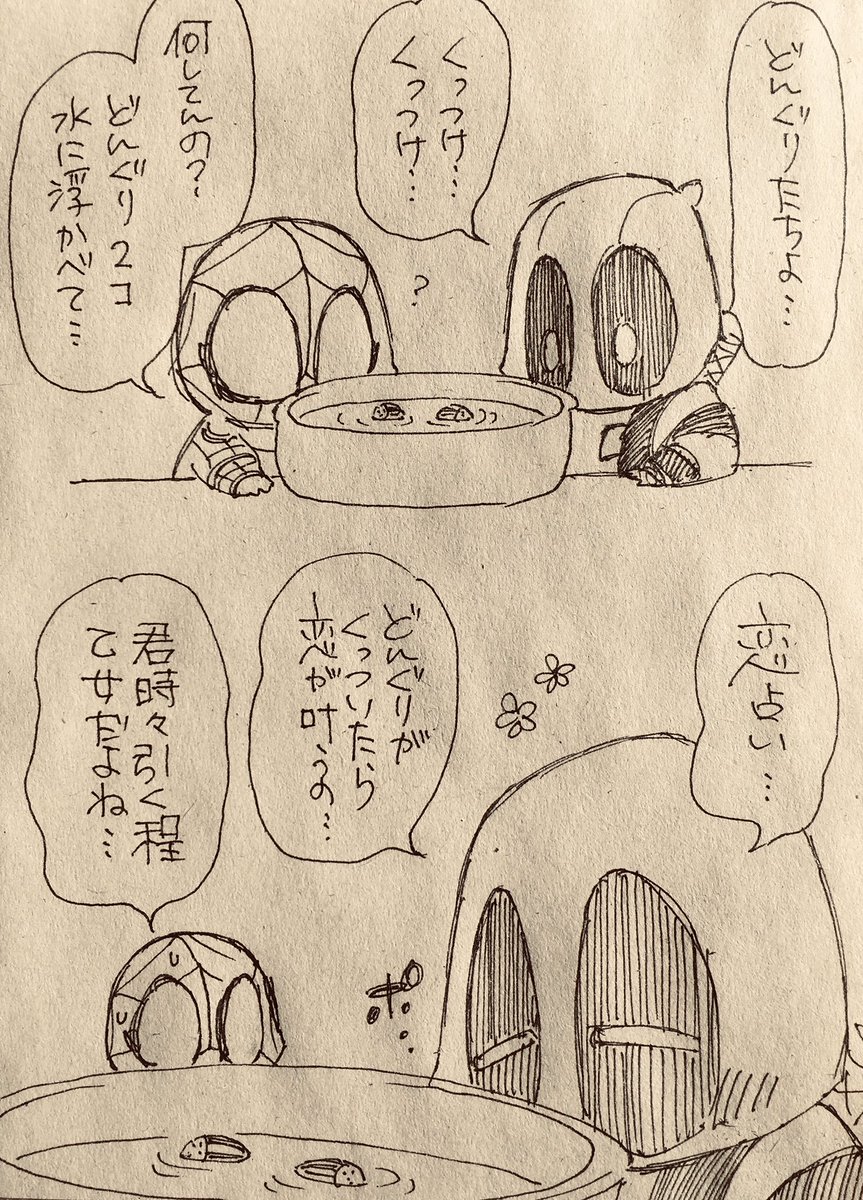 どんぐりたちよ…
くっつけ…
くっつけ…
何してんの?
どんぐり2コ
水に浮かべて…
?
恋占い…
どんぐりが
くっついたら
恋が叶うの…
ポ…
君時々引く程
乙女だよね…